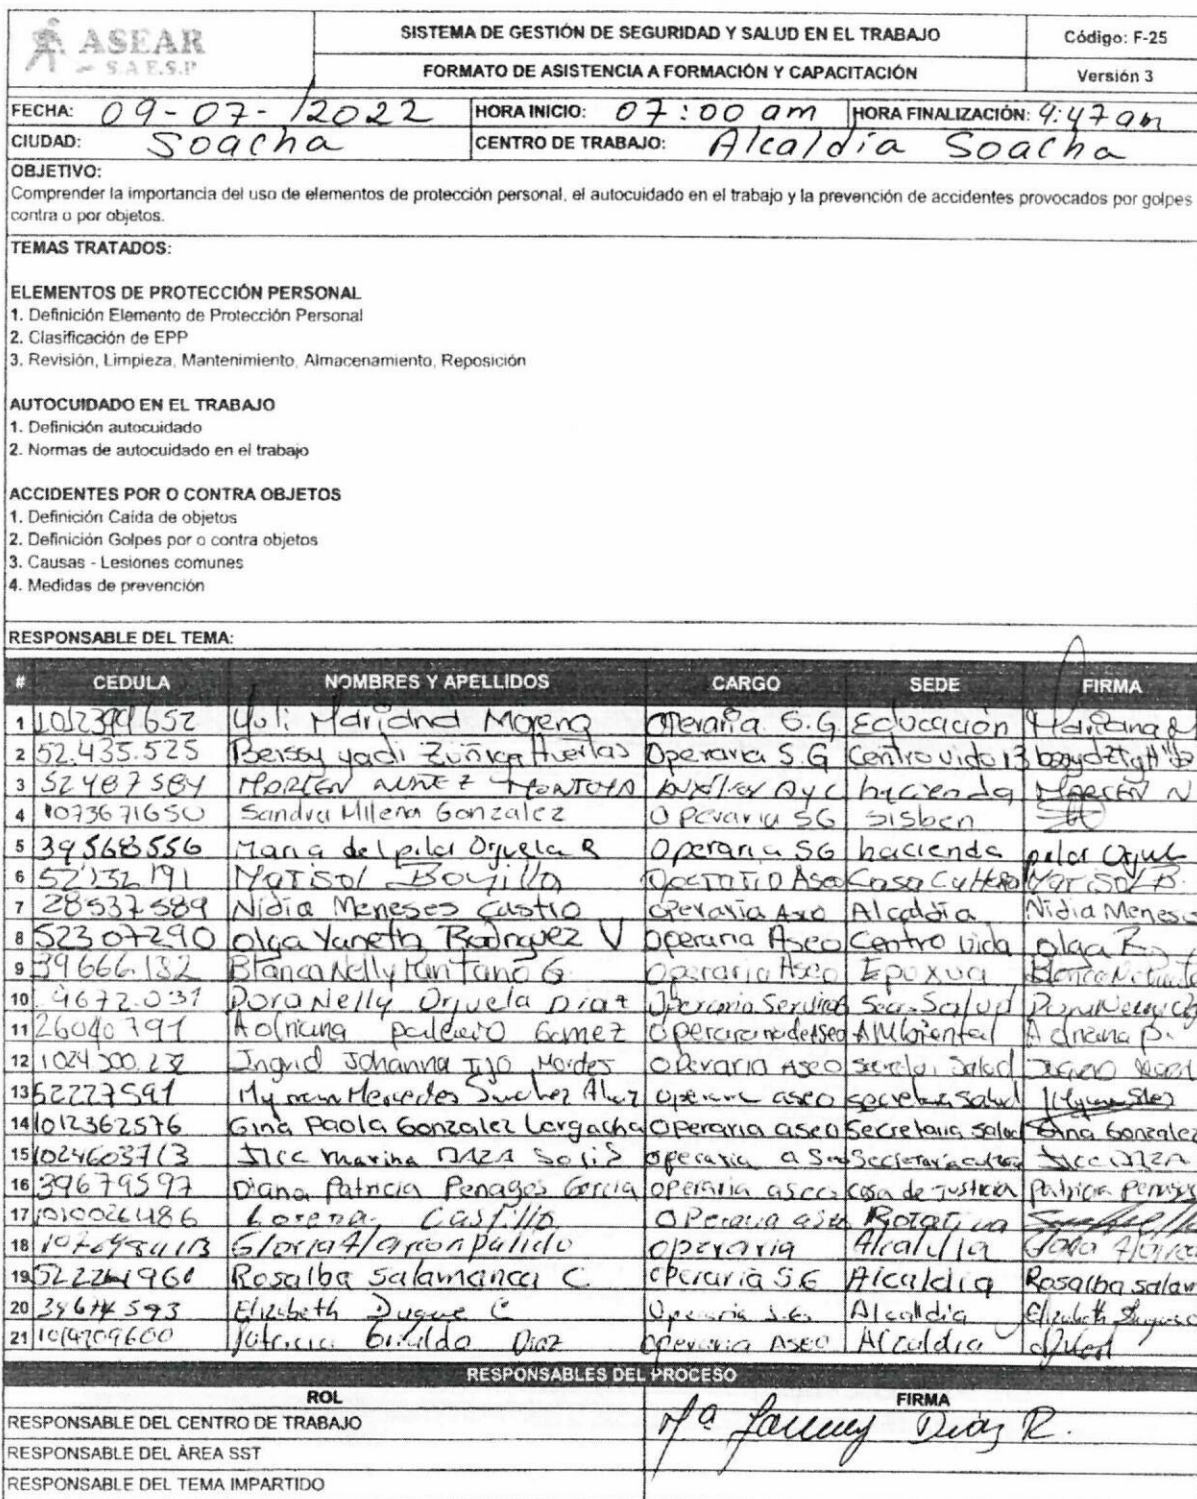 ASEAR
S.A E.S.P
SISTEMA DE GESTIÓN DE SEGURIDAD Y SALUD EN EL TRABAJO
Código: F-25
FORMATO DE ASISTENCIA A FORMACIÓN Y CAPACITACIÓN
Versión 3
FECHA: 09-07-/2022 HORA INICIO: 07:00 am HORA FINALIZACIÓN: 9:47 am
CIUDAD: Soacha CENTRO DE TRABAJO: Alcaldía Soacha
OBJETIVO:
Comprender la importancia del uso de elementos de protección personal, el autocuidado en el trabajo y la prevención de accidentes provocados por golpes
contra o por objetos.
TEMAS TRATADOS:
ELEMENTOS DE PROTECCIÓN PERSONAL
1. Definición Elemento de Protección Personal
2. Clasificación de EPP
3. Revisión, Limpieza, Mantenimiento, Almacenamiento, Reposición
AUTOCUIDADO EN EL TRABAJO
1. Definición autocuidado
2. Normas de autocuidado en el trabajo
ACCIDENTES POR O CONTRA OBJETOS
1. Definición Caída de objetos
2. Definición Golpes por o contra objetos
3. Causas - Lesiones comunes
4. Medidas de prevención
RESPONSABLE DEL TEMA:
# CEDULA NOMBRES Y APELLIDOS CARGO SEDE FIRMA
1 Yuli Mariana Moreno Operaria S.G Educación Mariana
2 52.435.525 yadi Zuñiga Huertas Operaria S.G Centro vida 13
3 52487584 MONTOYA hacienda N
4 1073671650 Sandra Milena Gonzalez Operaria SG sisben
5 39568556 Maria del pilar Orjuela R Operaria SG hacienda pilar
6 52132191 Marisol Operario Aseo Casa Marisol B.
7 28537589 Nidia Meneses Castro Operaria Aseo Alcaldia Nidia Meneses
8 52307290 olga Yaneth Rodriguez V Operaria Aseo Centro vida olga
9 39666132 Blanca Nelly G Operaria Aseo Blanca
10 Dora Nelly Orjuela Diaz Operaria Salud
11 26040791 Adriana Gomez Ambiental Adriana p.
12 Ingrid Johanna Operaria Aseo Salud
13 52227591 Mercedes Sanchez operaria aseo secretaria salud
14 1012362576 Gina Paola Gonzalez Largacha Operaria aseo Secretaria salud Gina Gonzalez
15 1024603713 marina Solis operaria
16 39679597 Diana Patricia Penagos Garcia operaria aseo casa de justicia Patricia
17 1010026486 Lorena Castillo Operaria aseo Rotativa
18 Gloria Alarcon pulido operaria Alcaldia
19 Rosalba Salamanca C operaria S.G Alcaldia Rosalba salam
20 Elizabeth Duque C Operaria S.G Alcaldia Elizabeth
21 Patricia Giraldo Diaz operaria Aseo Alcaldia
RESPONSABLES DEL PROCESO
ROL FIRMA
RESPONSABLE DEL CENTRO DE TRABAJO Mª Diaz R.
RESPONSABLE DEL ÀREA SST
RESPONSABLE DEL TEMA IMPARTIDO